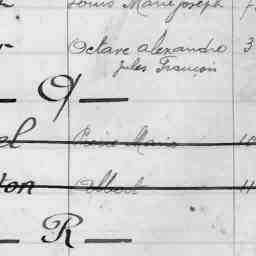 Louis Marie Joseph
Octave Alexandre 3
Jules François
— Q —
el Marie 10
on Albert 11
— R —